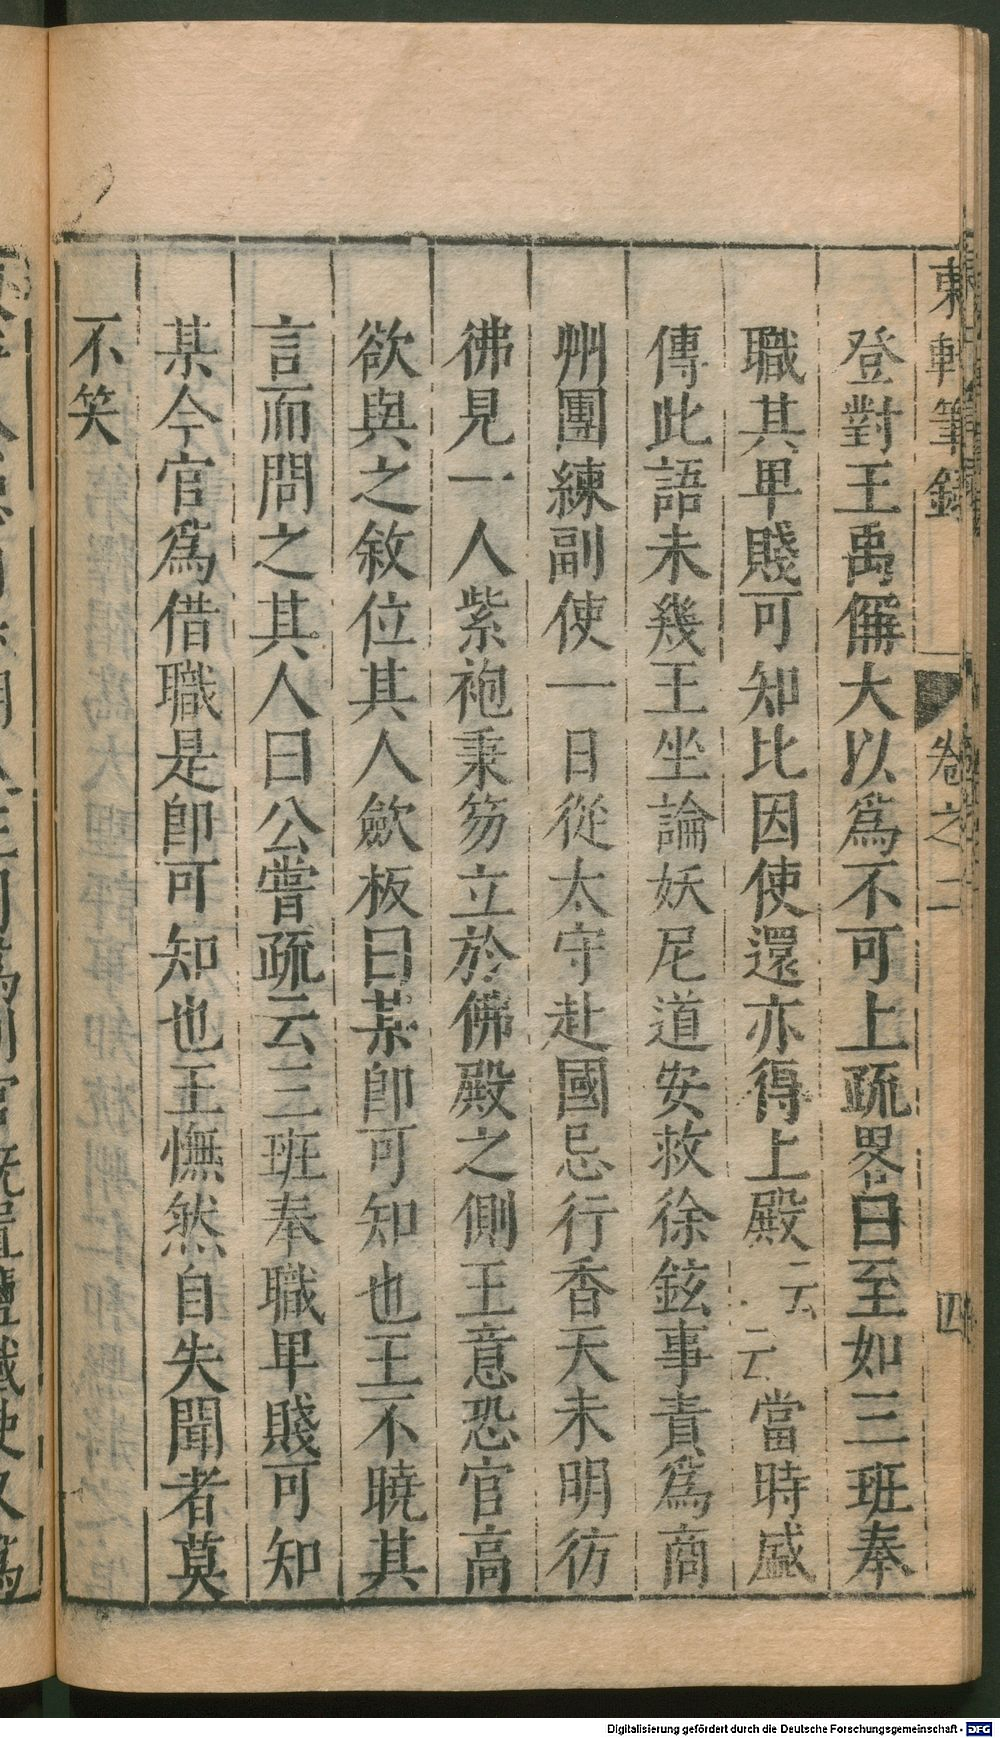 東軒筆錄 卷之二 四
登對王禹偁大以爲不可上疏畧曰至如三班奉
職其卑賤可知比因使還亦得上殿云云當時盛
傳此語未幾王坐論妖尼道安救徐鉉事責爲商
州團練副使一日從太守赴國忌行香天未明彷
彿見一人紫袍秉笏立於佛殿之側王意恐官高
欲與之敘位其人歛板曰某卽可知也王不曉其
言而問之其人曰公嘗疏云三班奉職卑賤可知
某今官爲借職是卽可知也王憮然自失聞者莫
不笑
Digitalisierung gefördert durch die Deutsche Forschungsgemeinschaft - DFG